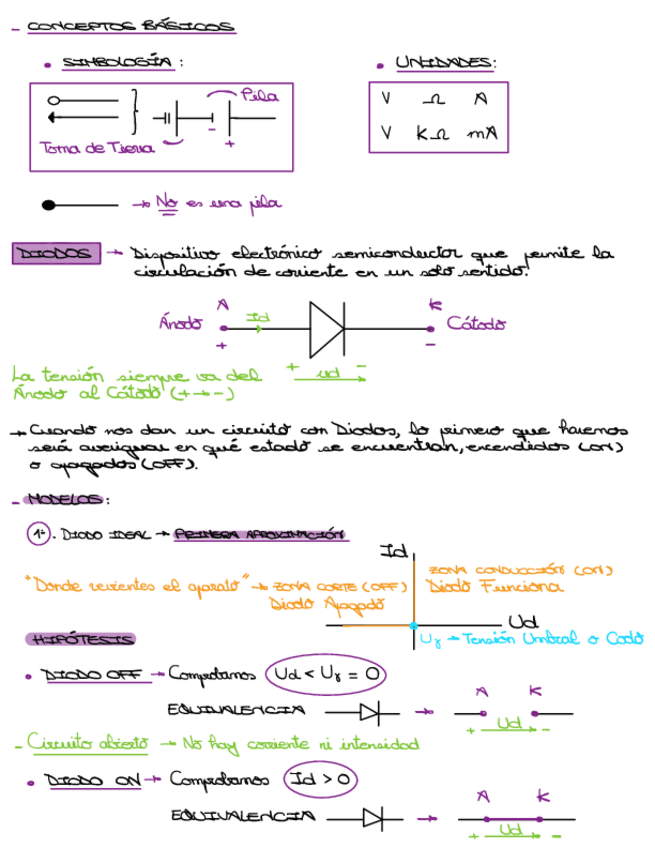 - CONCEPTOS BÁSICOS
• SIMBOLOGÍA:
• UNIDADES:
Pila
- +
Toma de Tierra
V Ω A
V KΩ mA
→ No es una pila
DIODOS → Dispositivo electrónico semiconductor que permite la
circulación de corriente en un solo sentido.
A Id K
Ánodo Cátodo
+ -
La tensión siempre va del
Ánodo al Cátodo (+→-)
+ Ud -
→ Cuando nos dan un circuito con Diodos, lo primero que haremos
será averiguar en qué estado se encuentran, encendidos (ON)
o apagados (OFF).
- MODELOS:
1º. DIODO IDEAL → PRIMERA APROXIMACIÓN
Id
ZONA CONDUCCIÓN (ON)
Diodo Funciona
"Donde revientes el aparato" → ZONA CORTE (OFF)
Diodo Apagado
Ud
Uγ → Tensión Umbral o Codo
HIPÓTESIS
• DIODO OFF → Comprobamos Ud < Uγ = 0
EQUIVALENCIA → A K
+ Ud -
- Circuito abierto → No hay corriente ni intensidad
• DIODO ON → Comprobamos Id > 0
EQUIVALENCIA → A K
+ Ud -